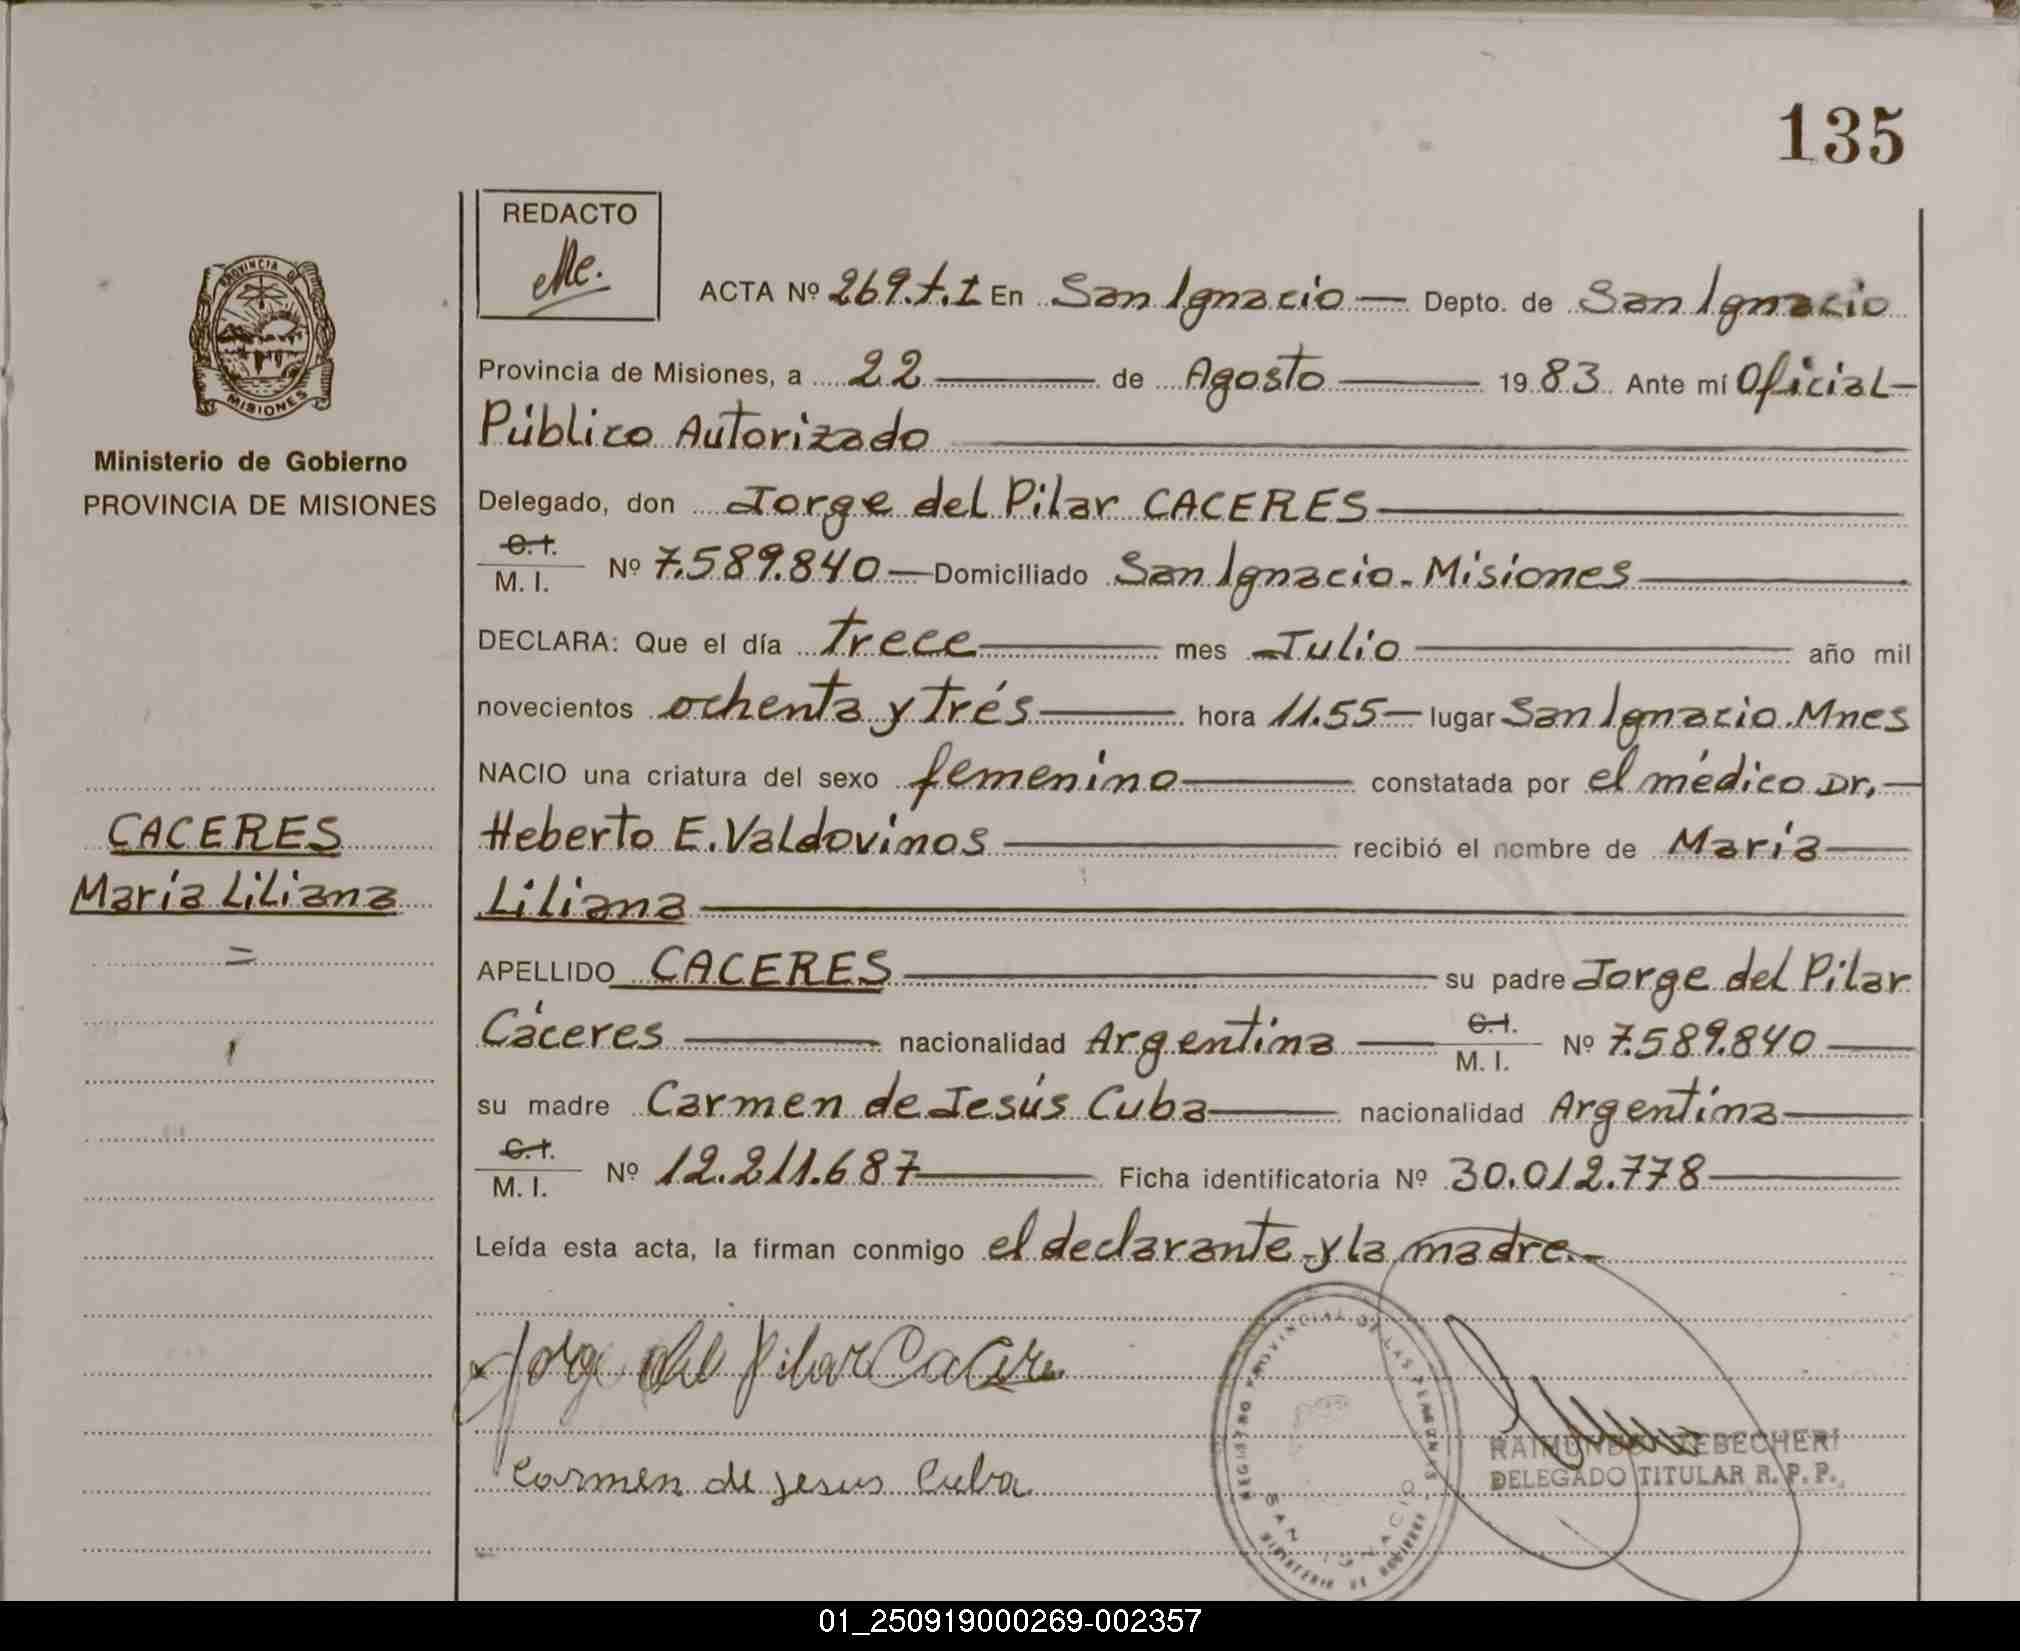 135
REDACTO
Me.
PROVINCIA DE
MISIONES
Ministerio de Gobierno
PROVINCIA DE MISIONES
CACERES
María Liliana
ACTA Nº 269.t.I En San Ignacio — Depto. de San Ignacio
Provincia de Misiones, a 22 de Agosto 1983. Ante mí Oficial
Público Autorizado
Delegado, don Jorge del Pilar CACERES
C.I.
M. I. Nº 7.589.840 — Domiciliado San Ignacio. Misiones
DECLARA: Que el día trece mes Julio año mil
novecientos ochenta y trés hora 11.55 — lugar San Ignacio. Mnes
NACIO una criatura del sexo femenino constatada por el médico Dr.
Heberto E. Valdovinos recibió el nombre de María
Liliana
APELLIDO CACERES su padre Jorge del Pilar
Cáceres nacionalidad Argentina C.I. M. I. Nº 7.589.840
su madre Carmen de Jesús Cuba nacionalidad Argentina
C.I.
M. I. Nº 12.211.687 Ficha identificatoria Nº 30.012.778
Leída esta acta, la firman conmigo el declarante y la madre.-
Jorge del Pilar Cacere
Carmen de Jesus Cuba
REGISTRO PROVINCIAL DE LAS PERSONAS
SAN IGNACIO
MINISTERIO DE GOBIERNO
RAIMUNDO
DELEGADO TITULAR R. P. P.
01_250919000269-002357